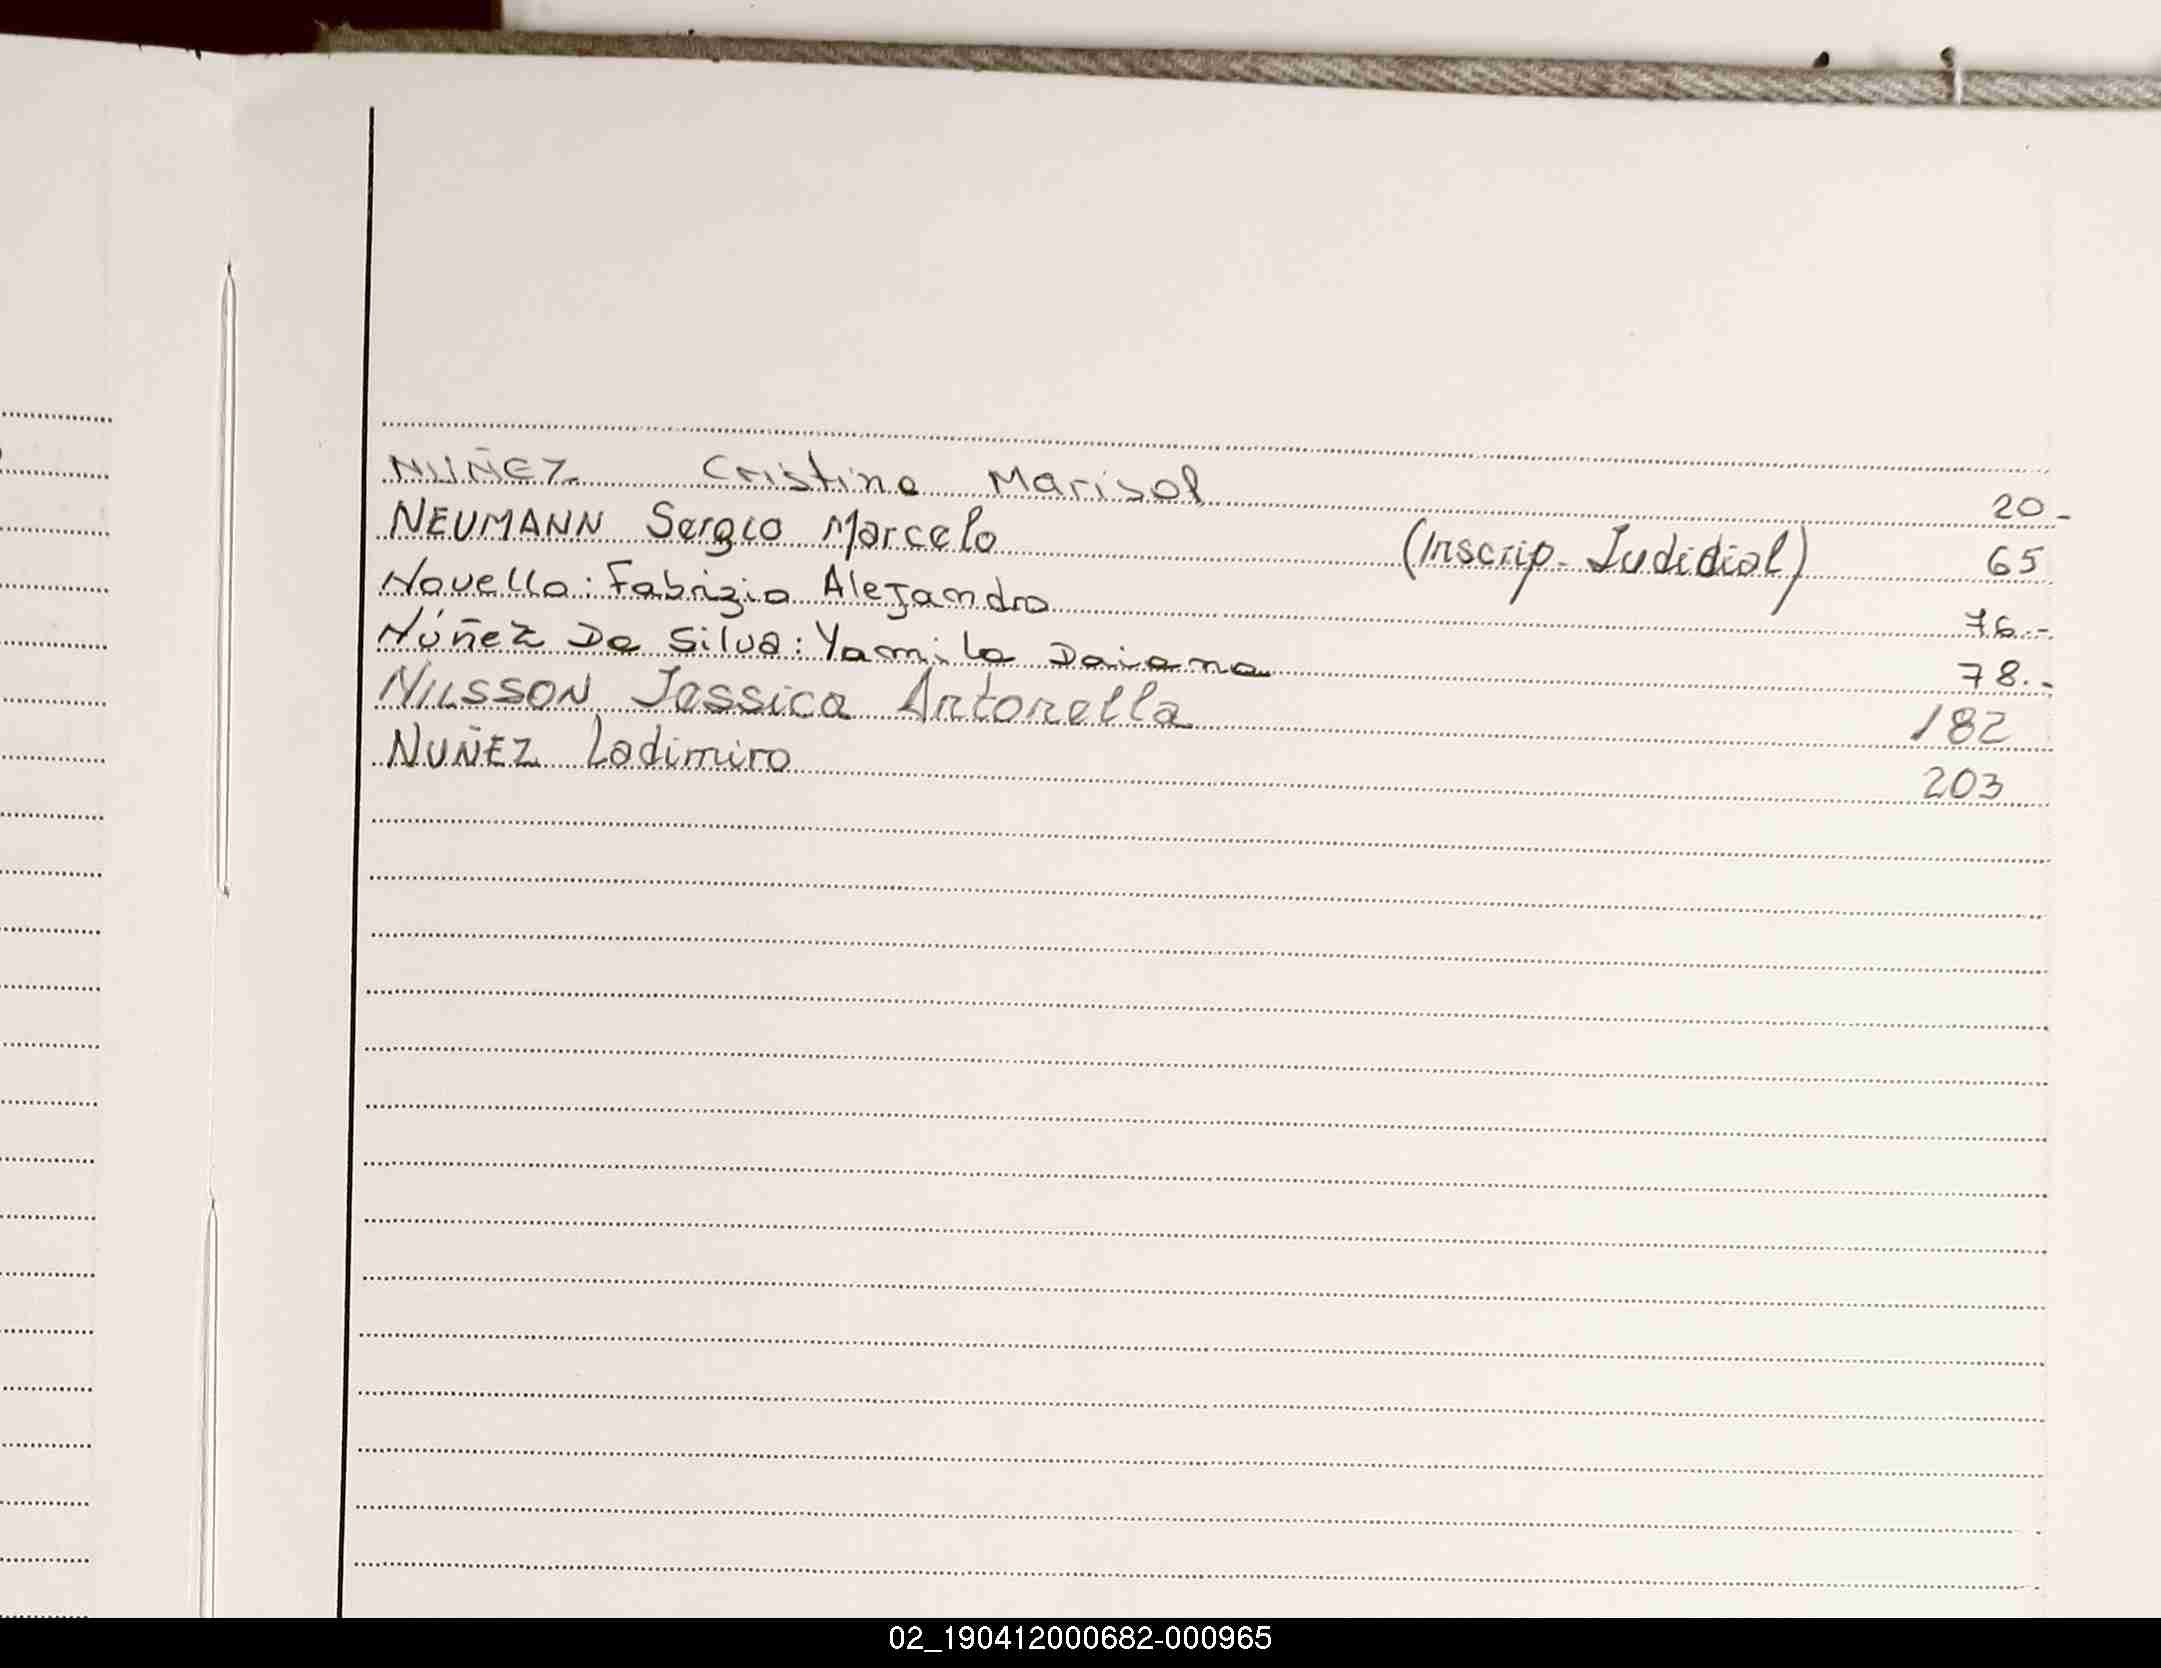 NUÑEZ Cristina Marisol 20-
NEUMANN Sergio Marcelo (Inscrip. Judidial) 65
Novello: Fabrizio Alejandro 76.-
Núñez Da Silva: Yamila Daiana 78.-
NILSSON Jessica Antonella 182
NUÑEZ Ladimiro 203
02_190412000682-000965